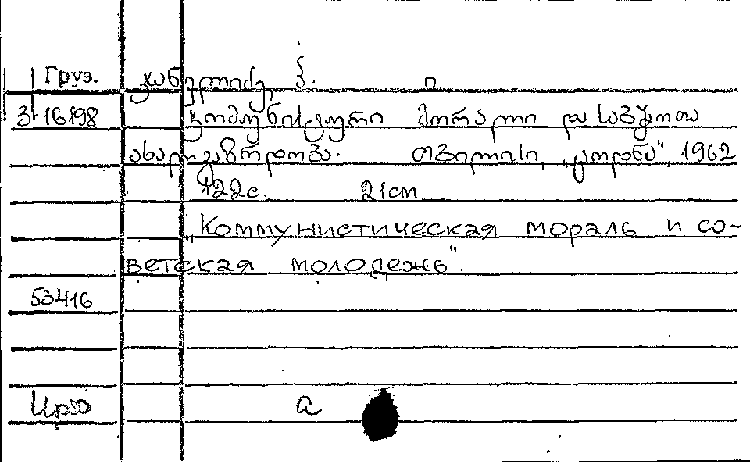 Груз. ჯანელიძე, ვ.
3-16198 კომუნისტური მორალი და საბჭოთა
ახალგაზრდობა. თბილისი, „ცოდნა", 1962
122с. 21см
„Коммунистическая мораль и со-
ветская молодежь".
53416
а